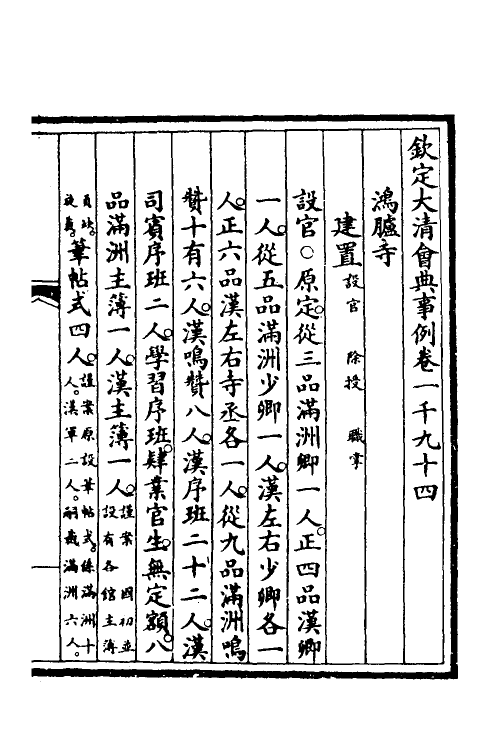 欽定大清會典事例卷一千九十四
鴻臚寺
建置設官 除授 職掌
設官○原定。從三品滿洲卿一人。正四品漢卿
一人。從五品滿洲少卿一人。漢左右少卿各一
人。正六品漢左右寺丞各一人。從九品滿洲鳴
贊十有六人。漢鳴贊八人。漢序班二十二人。漢
司賓序班二人。學習序班。肄業官生。無定額。八
品滿洲主簿一人。漢主簿一人。謹案 國初並設有各館主簿
員缺。旋裁。筆帖式四人。謹案原設筆帖式。係滿洲十人。漢軍二人。嗣裁滿洲六人。